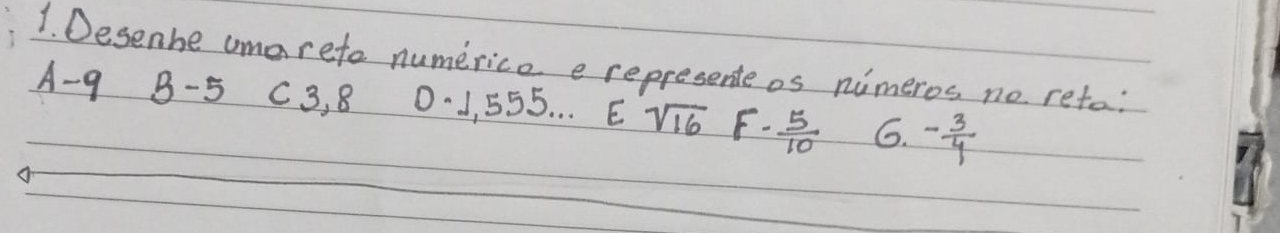 1. Desenhe uma reta numérica e represente os números na reta:
A-9 B-5 C 3,8 D-1,555... E √16 F-5/10 G. -3/4